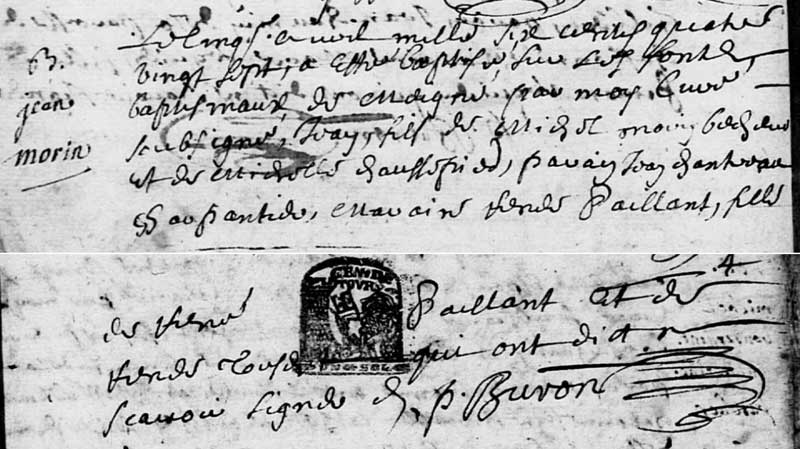 B.
jean
morin
Le vingt avril mille six cents quatre
vingt sept, a esté baptisé, sur les fonts
baptismaux de par moy Curé
soubsigné, Jean, fils de Michel morin
et de Michelle chaussepied, parain Jean
maraine Renée Paillant, fille
de René Paillant et de
Renée qui ont dict ne
scavoir signer P. Buron
GEN DE
TOURS